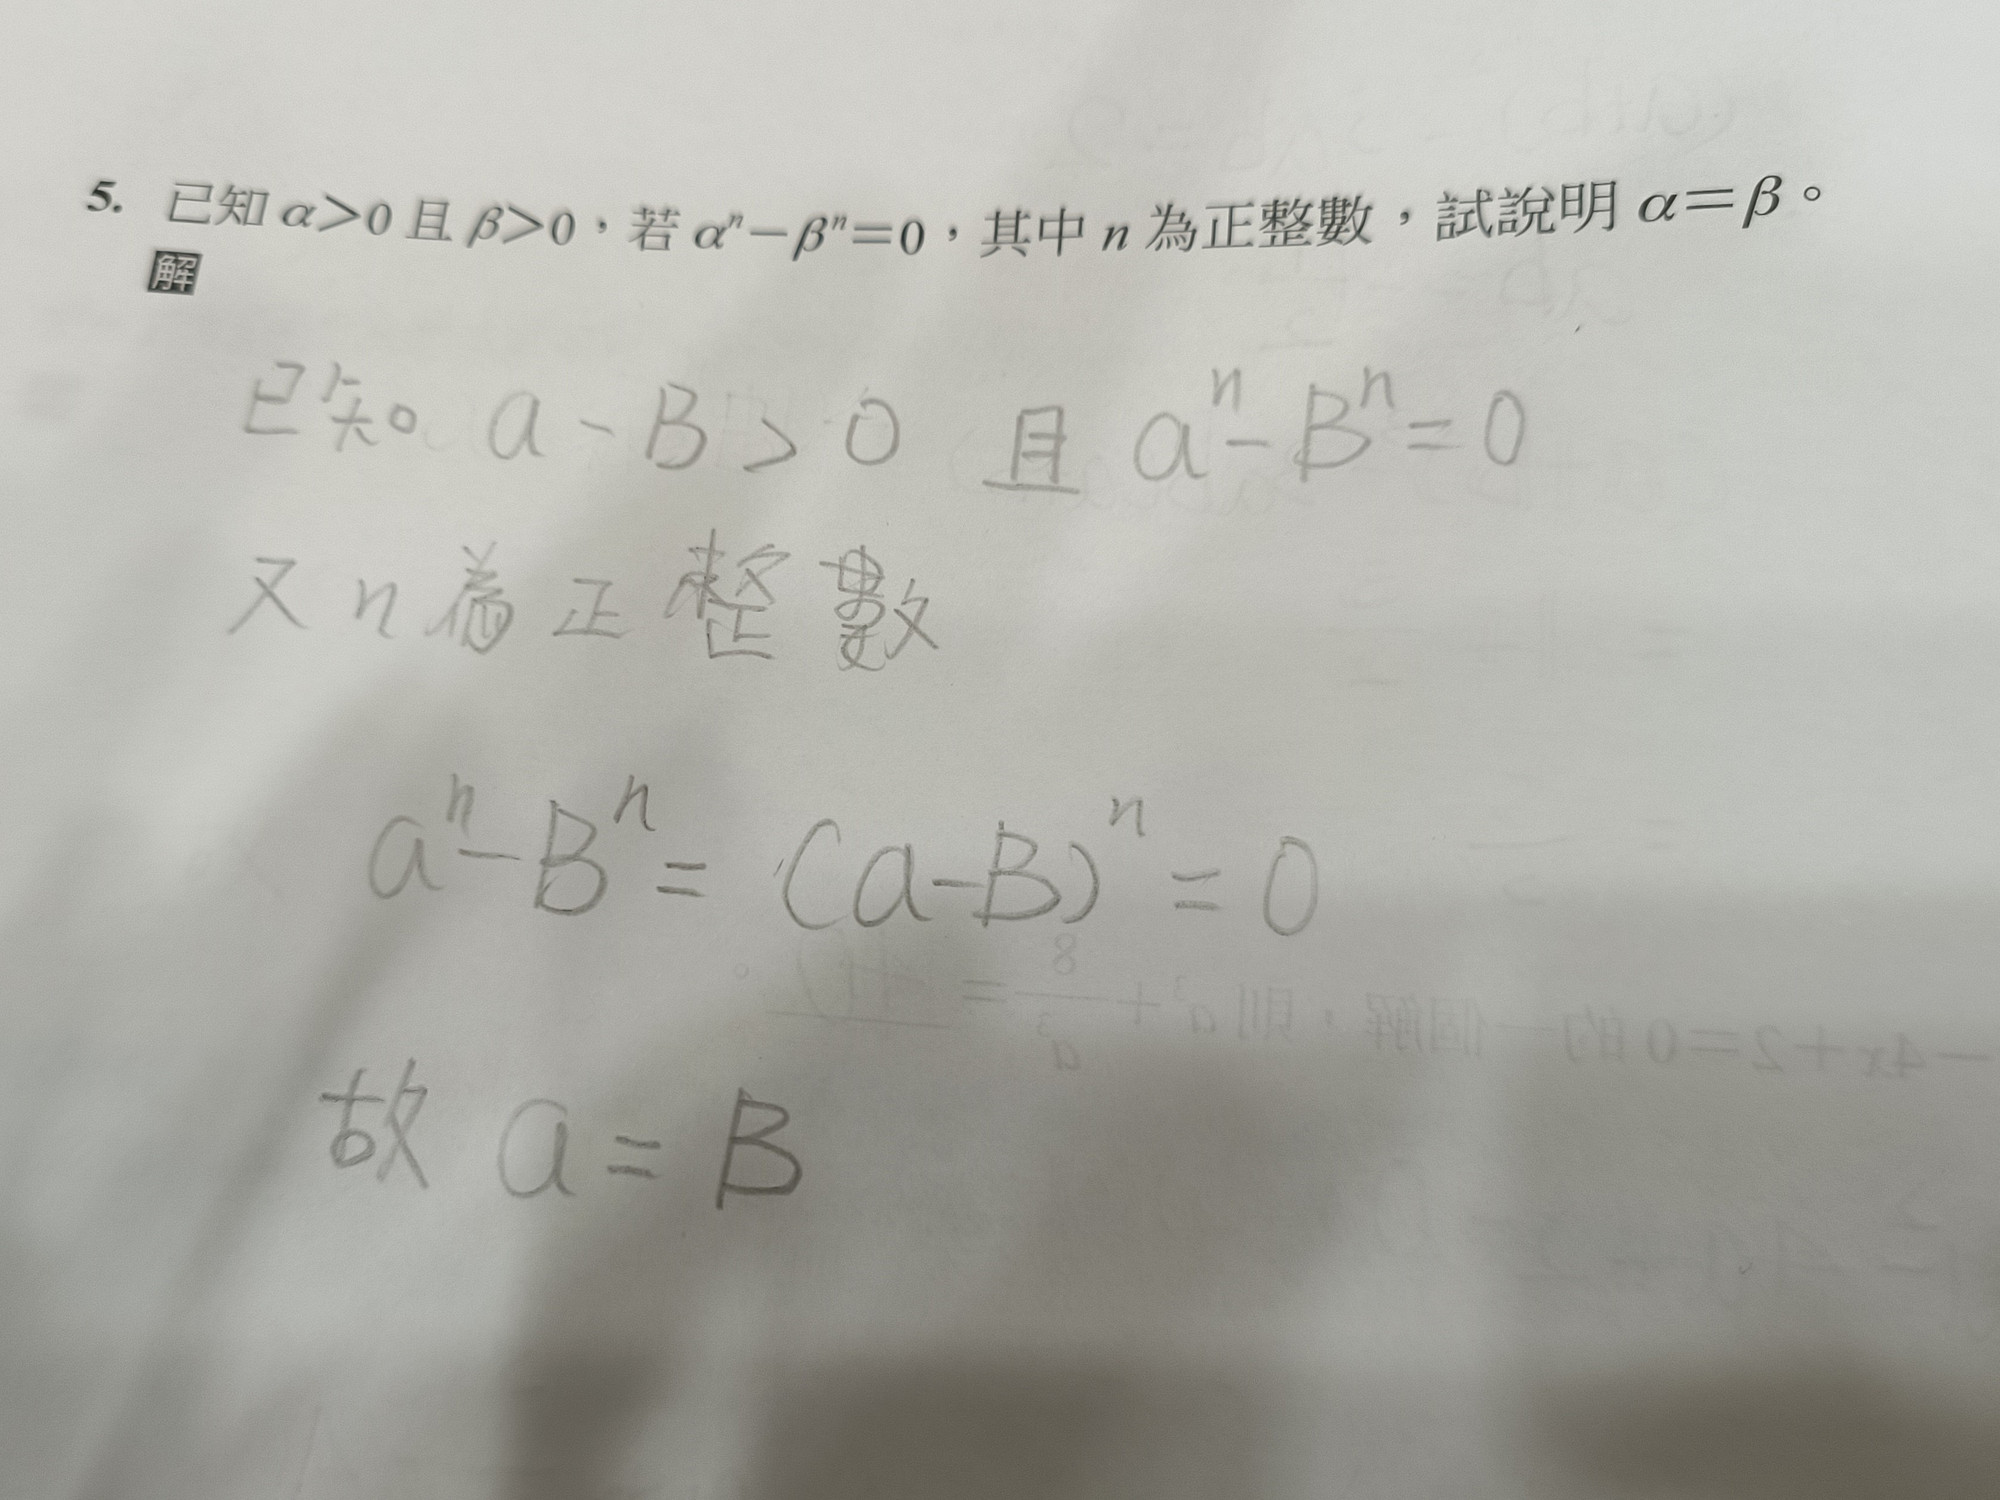 5. 已知 α>0 且 β>0，若 αⁿ−βⁿ=0，其中 n 為正整數，試說明 α=β。
解
已知 a - B > 0 且 aⁿ - Bⁿ = 0
又 n 為正整數
aⁿ - Bⁿ = (a-B)ⁿ = 0
故 a = B